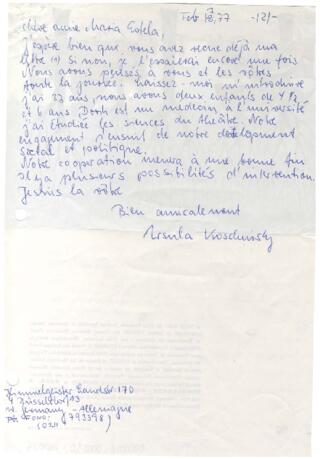 Feb 12, 77 -12/-
Chère Anne Maria Estela,
J'espère bien que vous avez reçue déjà ma
lettre (1) Si non, je l'essaierai encore une fois
Nous avons pensés à vous et les vôtres
toute la journée. Laissez-moi m'introduire
j'ai 33 ans, nous avons deux enfants de 4 1/2
et 6 ans. est un médecin à l'université
j'ai étudiée les sciences du théâtre. Notre
engagement s'ensuit de notre development
social et politique.
Notre cooperation menera à une bonne fin
il y a plusieurs possibilités d'intervention.
Je suis la vôtre
Bien amicalement
Ursula
Himmelgeister Landstr 170
4 Düsseldorf 13
W. Germany - Allemagne
FONO:
(0211) (793398)